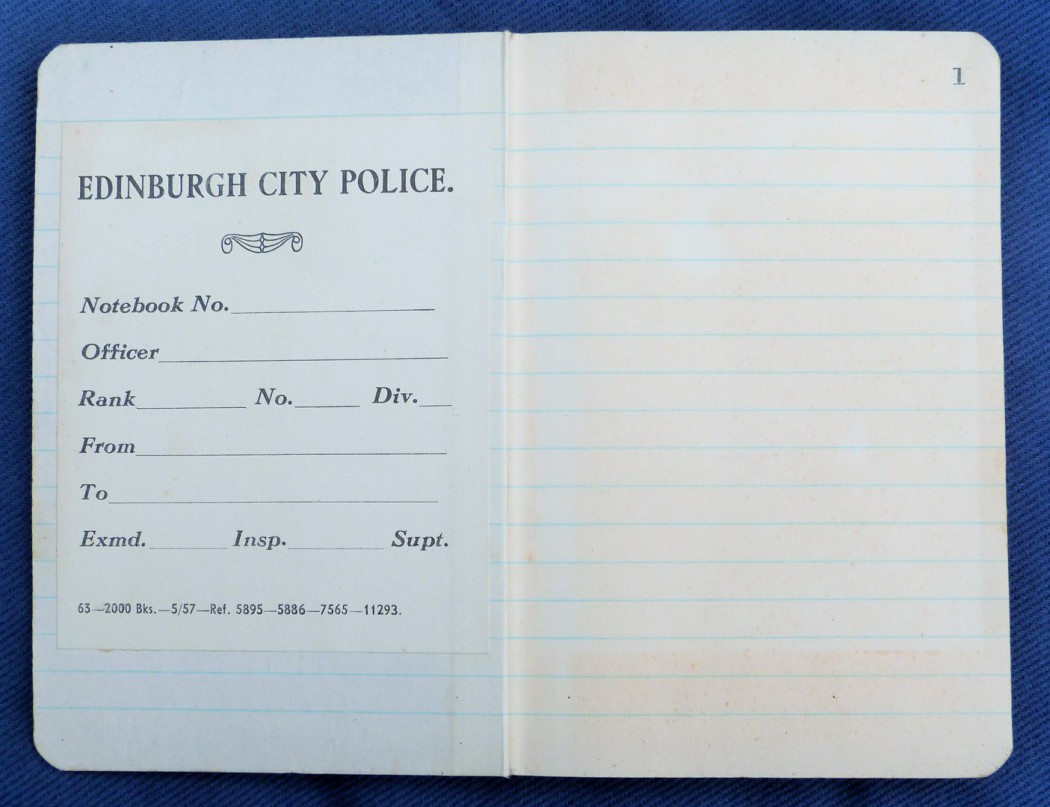 EDINBURGH CITY POLICE.
Notebook No.
Officer
Rank No. Div.
From
To
Exmd. Insp. Supt.
63—2000 Bks.—5/57—Ref. 5895—5886—7565—11293.
1